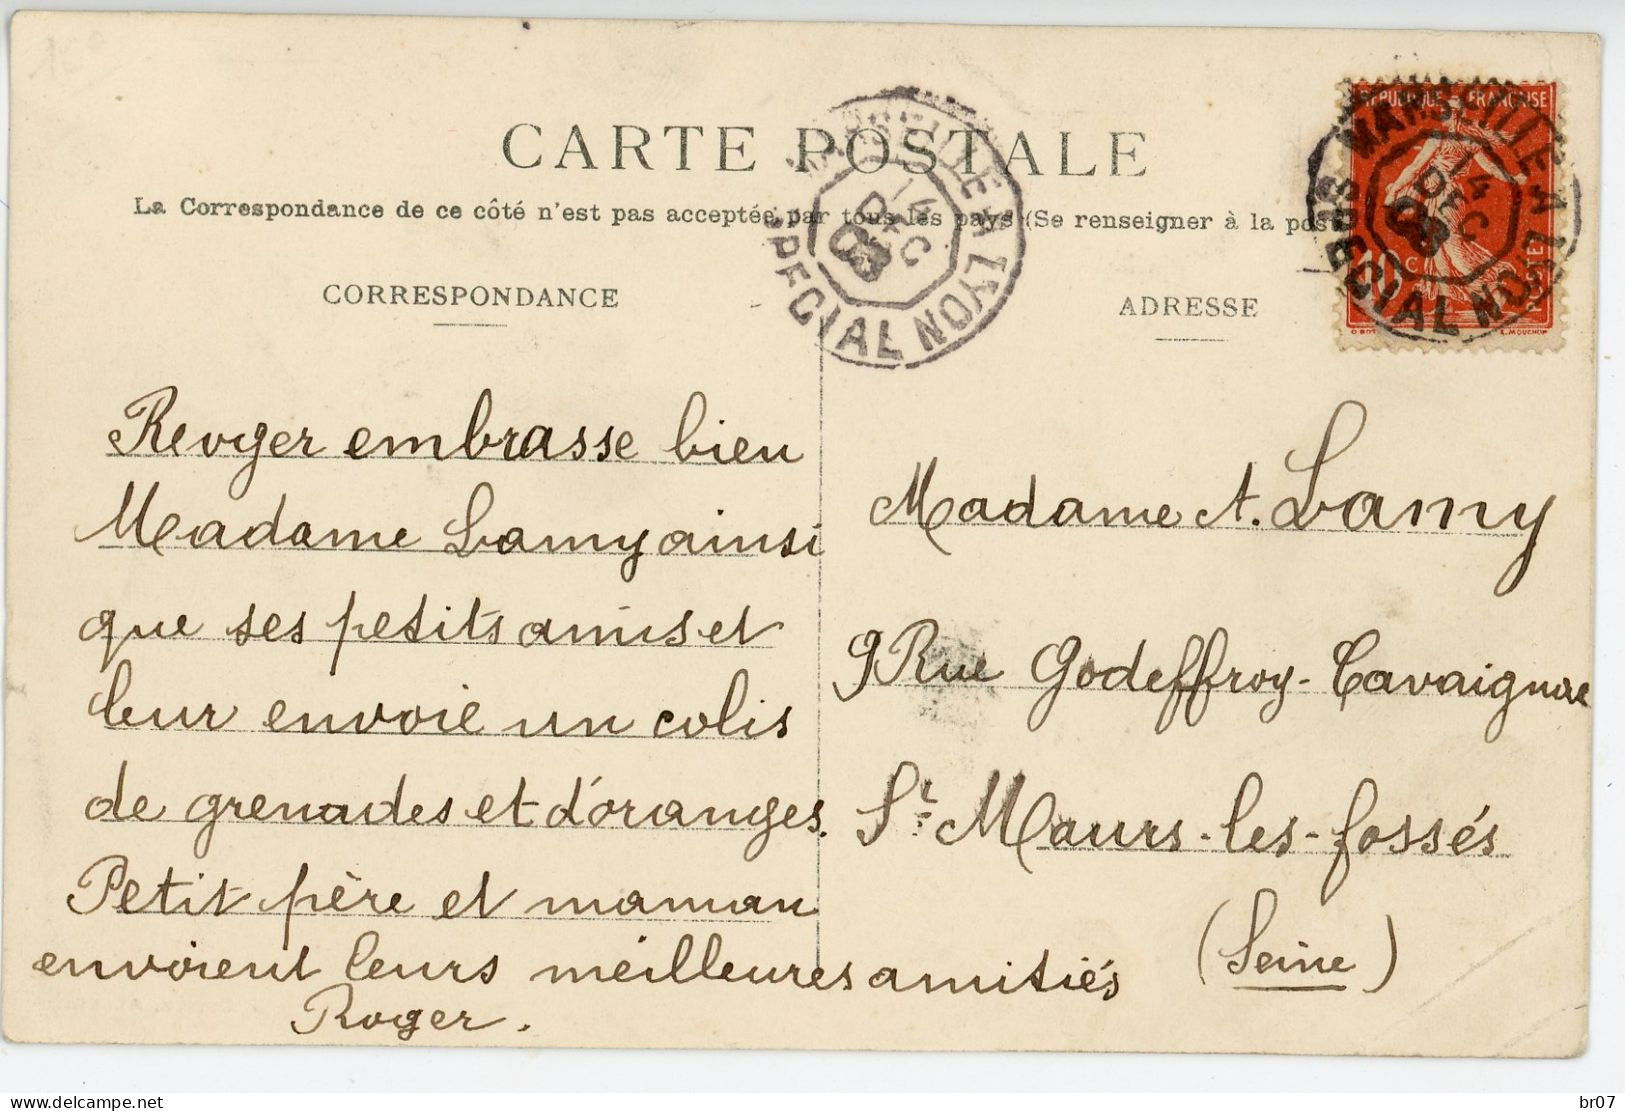 CARTE POSTALE
La Correspondance de ce côté n'est pas acceptée par tous les pays (Se renseigner à la post
CORRESPONDANCE
Revger embrasse bien
Madame Lamy ainsi
que ses petits amis et
leur envoie un colis
de grenades et d'oranges.
Petit père et maman
envoient leurs meilleures amitiés
Roger.
ADRESSE
Madame A. Lamy
9 Rue Godeffroy-Cavaignac
St Maurs-les-fossés
(Seine)
MARSEILLE A LYON
SPECIAL
14
DEC
08
REPUBLIQUE FRANÇAISE
10 C
POSTES
E. MOUCHON
MARSEILLE A LYON
SPECIAL
14
DEC
08
delcampe.net
br07